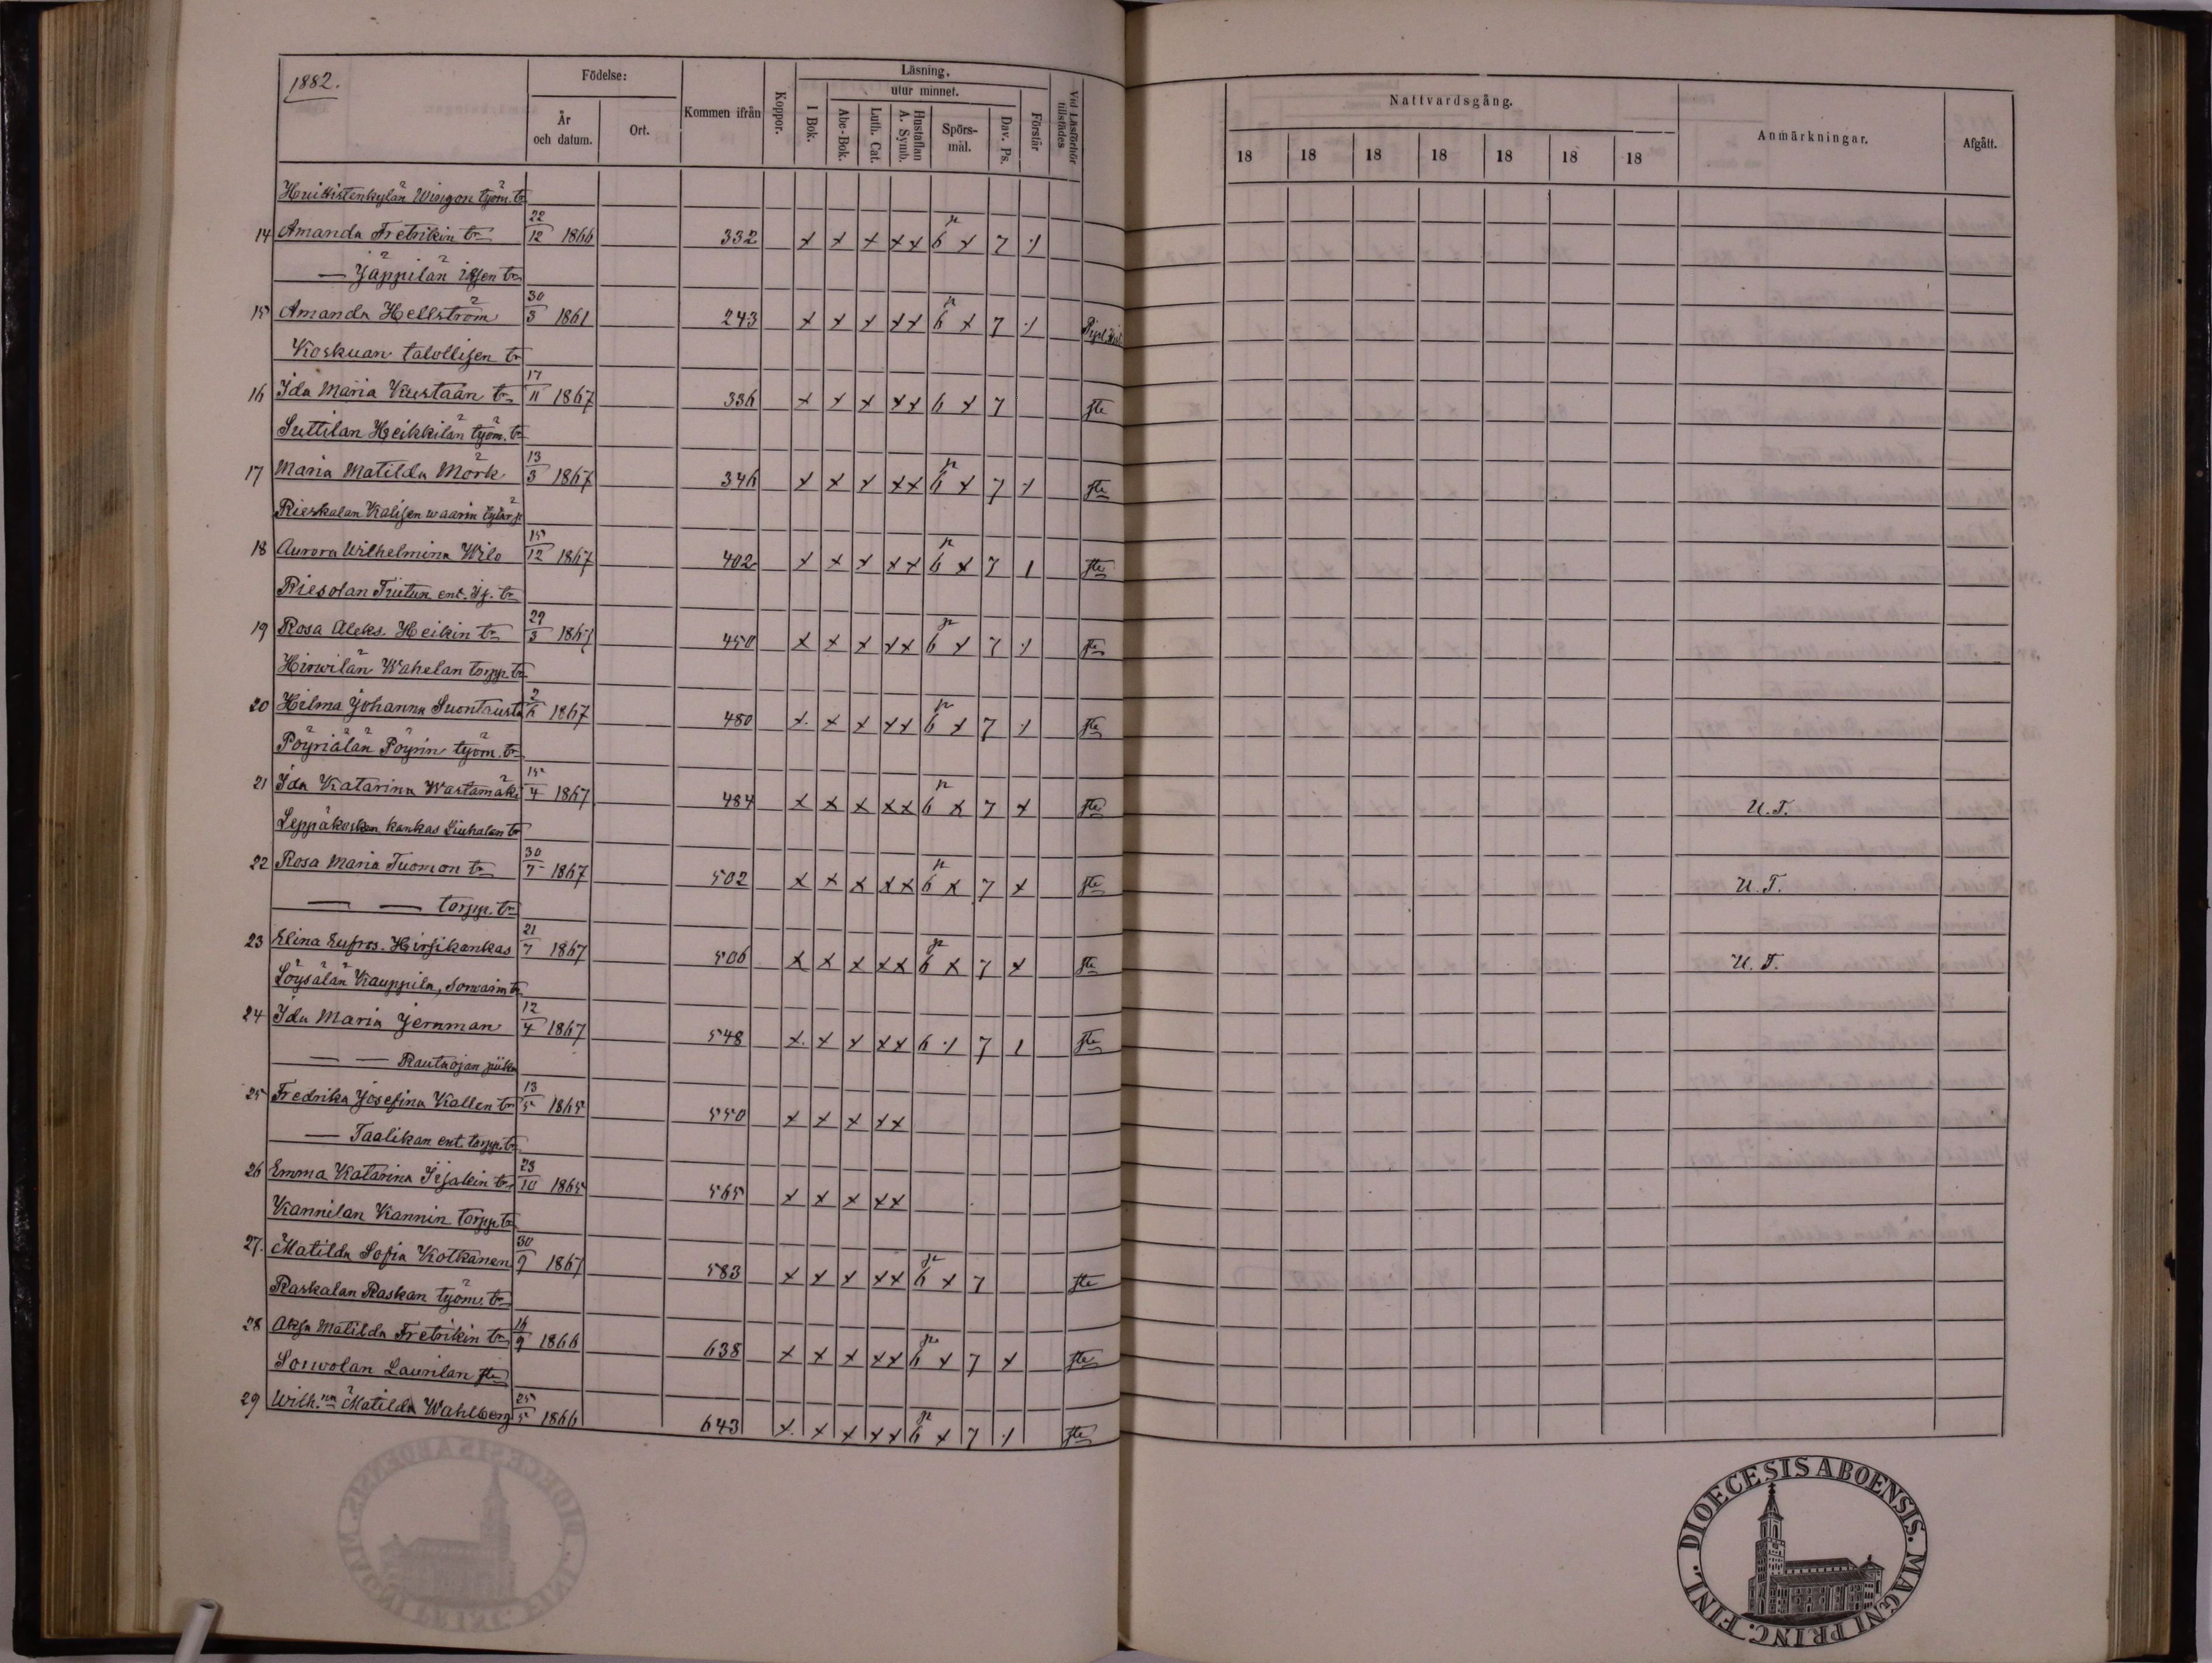 1882.
Födelse:
År och datum.
Ort.
Kommen ifrån
Koppor.
Läsning.
utur minnet.
I Bok.
Abc-Bok.
Luth. Cat.
Hustaflan A. Symb.
Spörs-mål.
Dav. Ps.
Förstår
Vid Läsförhör tillstädes
Nattvardsgång.
18 18 18 18 18 18 18
Anmärkningar.
Afgått.
Huittistenkylän Wingon työm. tr
14 Amanda Fretrikin tr 22/12 1866 332 x x x x x 6 x 7 1
— Jäppilän itsen tr
15 Amanda Hellström 30/3 1861 243 x x x x x 6 x 7 1
Koskuan talollisen tr
16 Ida Maria Kustaan tr 17/11 1867 336 x x x x x 6 x 7 fle
Suttilan Heikkilän työm. tr
17 Maria Matilda Mörk 13/3 1867 346 x x x x x 6 x 7 1 fle
Rieskalan Kalisen waarin
18 Aurora Wilhelmina Wilo 15/12 1867 402 x x x x x 6 x 7 1 fle
Riesolan ent. Is. tr
19 Rosa Aleks. Heikin tr 29/3 1867 450 x x x x x 6 x 7 1 fle
Hirwilän Wahelan torpp. tr
20 Hilma Johanna Suontausta 2/6 1867 480 x x x x x 6 x 7 1 fle
Pöyriälän Pöyrin työm. tr
21 Ida Katarina Wastamäki 15/4 1867 484 x x x x x 6 x 7 x fle U. T.
Leppäkosken kankas Liuhalan tr
22 Rosa Maria Tuomon tr 30/7 1867 502 x x x x x 6 x 7 x fle U. T.
— — torpp. tr
23 Elina Eufros. Hirsikankas 21/7 1867 506 x x x x x 6 x 7 x fle U. T.
Löysälän Kauppila, tr
24 Ida Maria Jernman 12/4 1867 548 x x x x x 6 1 7 1 fle
— — Rautaojan piika
25 Fredrika Josefina Kallen tr 13/5 1865 550 x x x x x
— Taalikan ent. torpp. tr
26 Emma Katarina Iisakin tr 23/10 1865 565 x x x x x
Kannilan Kannin torpp. tr
27. Matilda Sofia Kotkanen 30/9 1867 583 x x x x x 6 x 7 fle
Raskalan Raskan työm. tr
28 Aksa Matilda Fretrikin tr 16/9 1866 638 x x x x x 6 x 7 x fle
Sorwolan Laurilan fle
29 Wilh.na Matilda Wahlberg 25/5 1866 643 x x x x x 6 x 7 1 fle
DIOECESIS ABOENSIS. MAGNI PRINC. FINL.